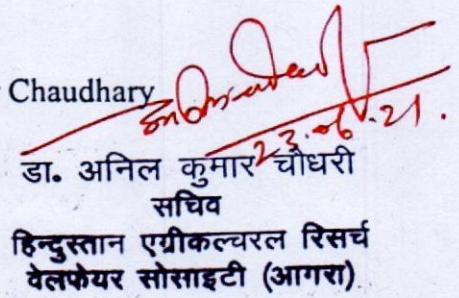 Chaudhary
23.06.21.
डा. अनिल कुमार चौधरी
सचिव
हिन्दुस्तान एग्रीकल्चरल रिसर्च
वेलफेयर सोसाइटी (आगरा)